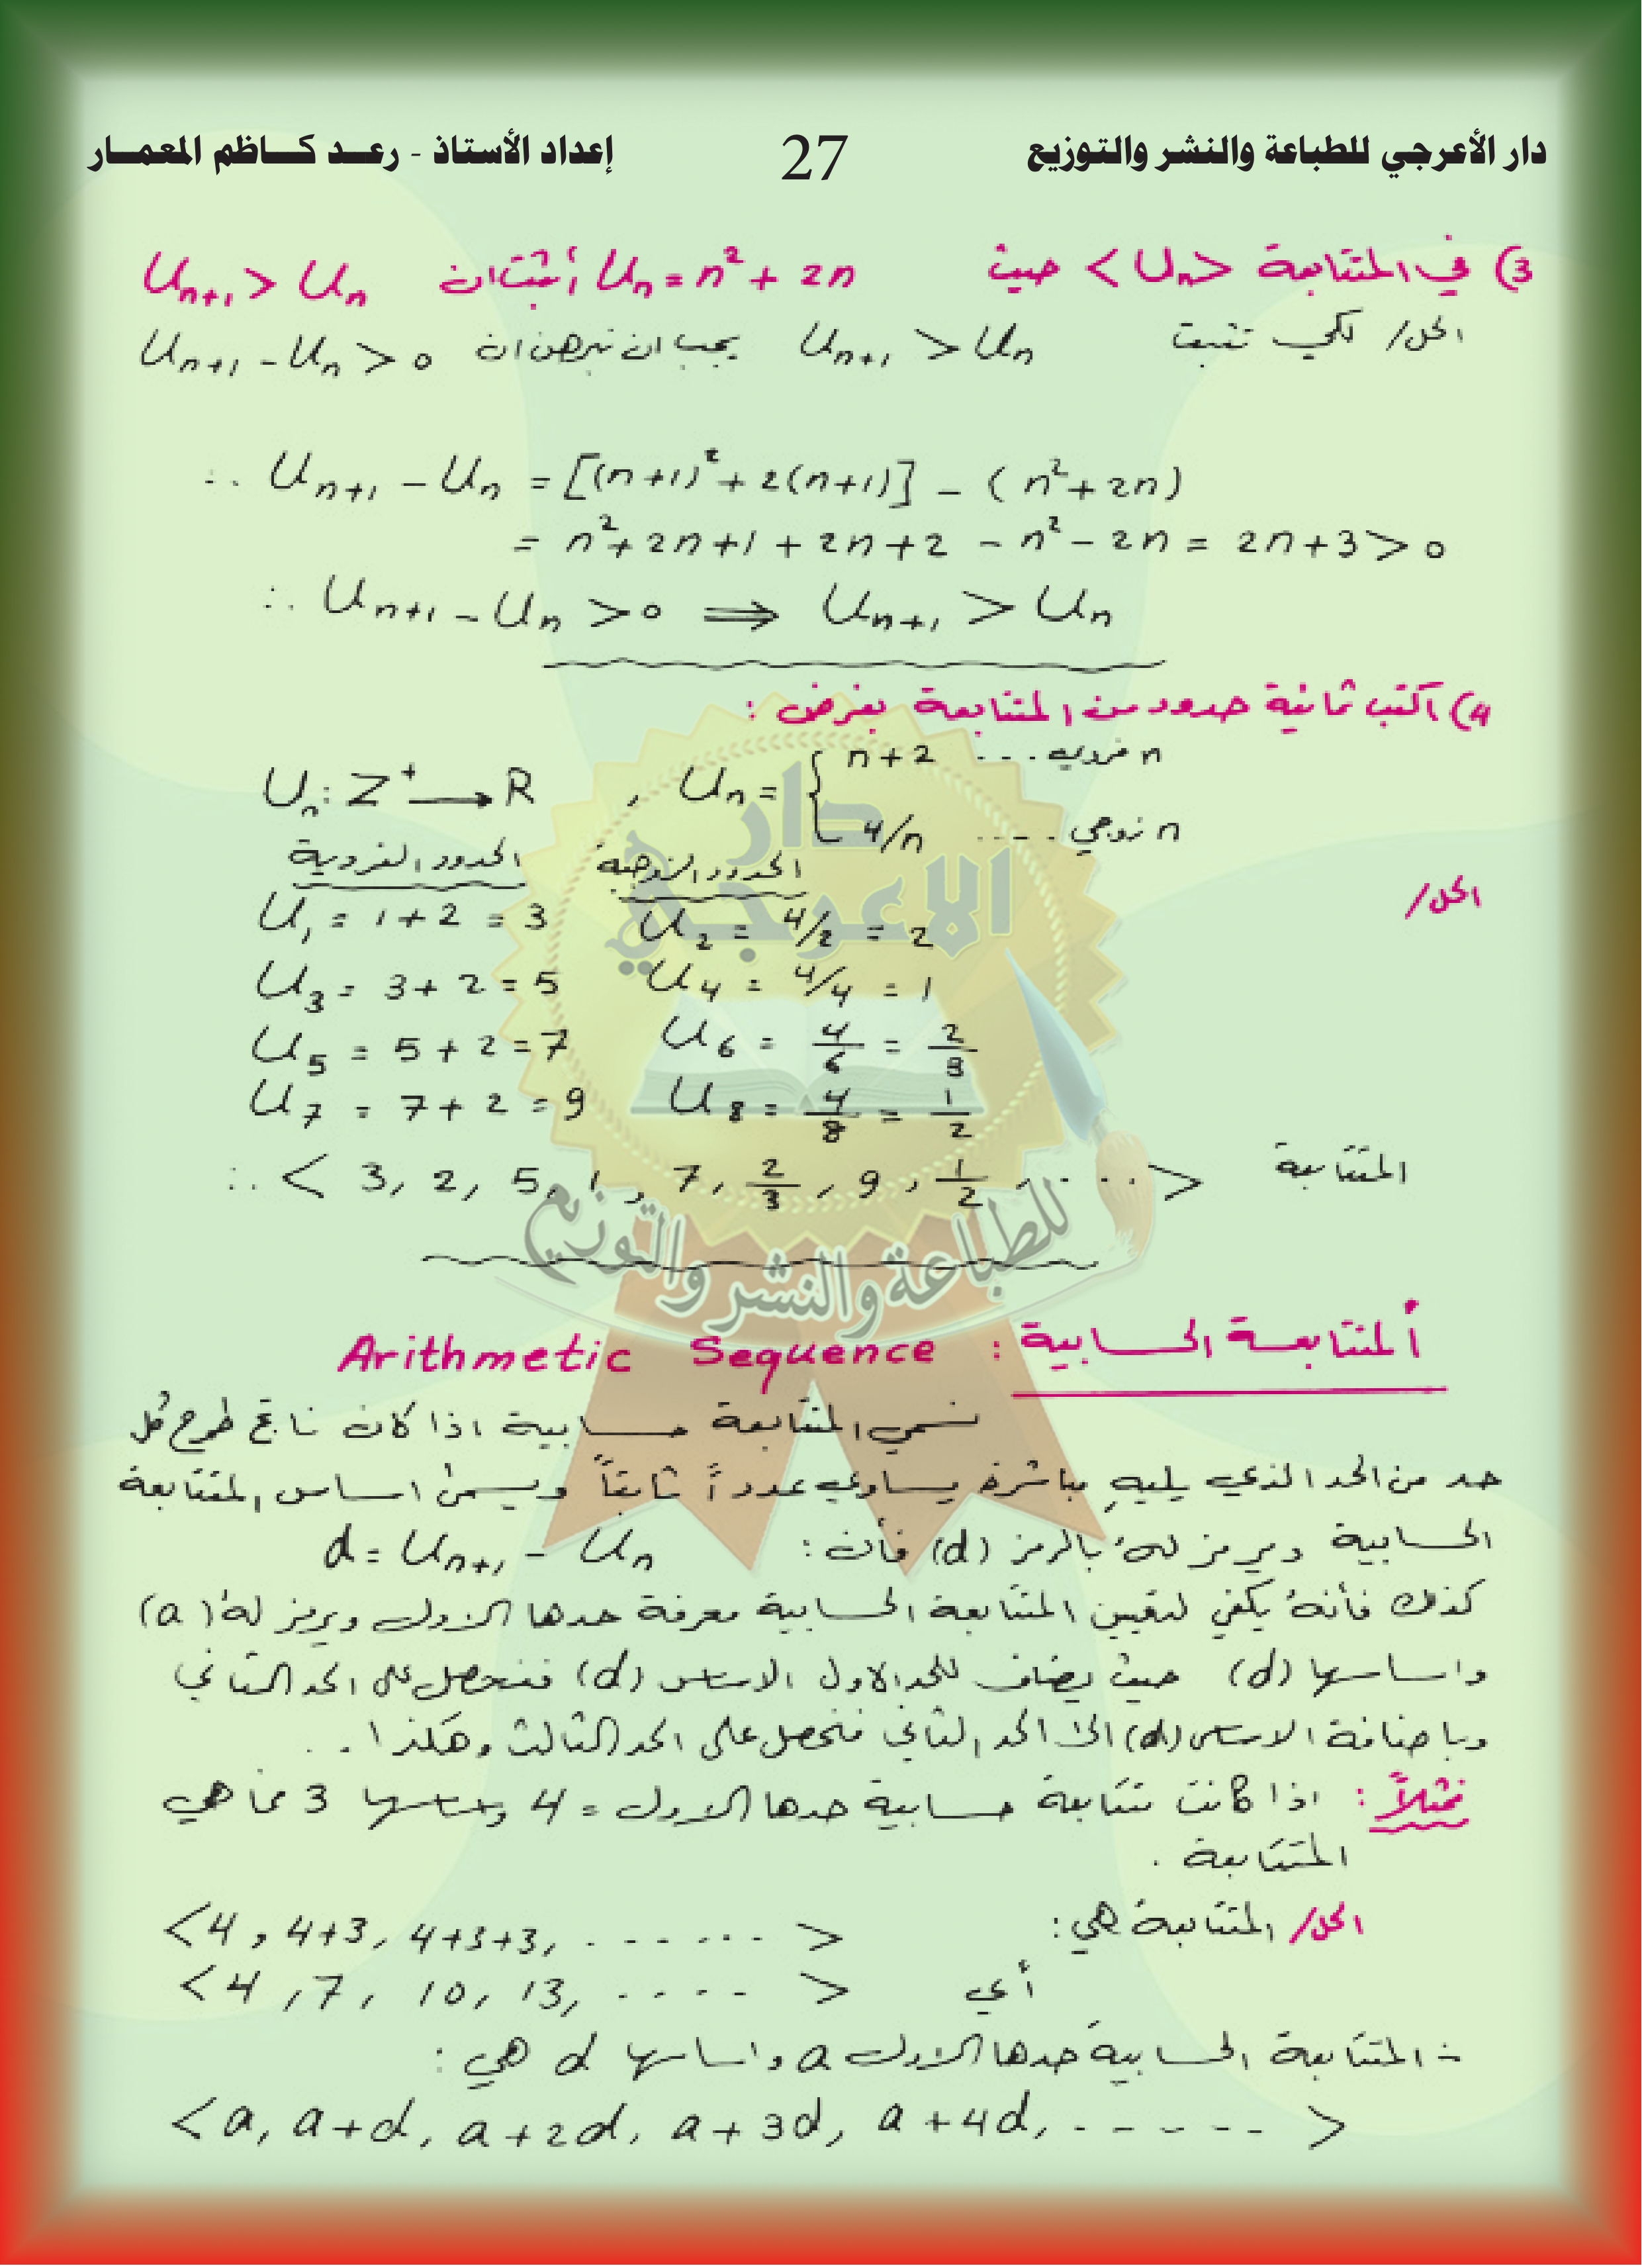 دار الأعرجي للطباعة والنشر والتوزيع 27 إعداد الأستاذ - رعد كاظم المعمار
3) في المتتابعة <Un> حيث Un = n² + 2n أثبت ان Un+1 > Un
الحل/ لكي نثبت Un+1 > Un يجب ان نبرهن ان Un+1 - Un > 0
∴ Un+1 - Un = [(n+1)² + 2(n+1)] - (n² + 2n)
= n² + 2n + 1 + 2n + 2 - n² - 2n = 2n + 3 > 0
∴ Un+1 - Un > 0 ⇒ Un+1 > Un
4) اكتب ثمانية حدود من المتتابعة بفرض :
Un: Z⁺ → R , Un = { n+2 .... n فردي
4/n .... n زوجي
الحدود الفردية الحدود الزوجية
الحل/
U1 = 1+2 = 3 U2 = 4/2 = 2
U3 = 3+2 = 5 U4 = 4/4 = 1
U5 = 5+2 = 7 U6 = 4/6 = 2/3
U7 = 7+2 = 9 U8 = 4/8 = 1/2
∴ < 3, 2, 5, 1, 7, 2/3, 9, 1/2, .... > المتتابعة
دار
الاعرجي
للطباعة والنشر والتوزيع
ألمتتابعة الحسابية : Arithmetic Sequence
نسمي المتتابعة حسابية اذا كان ناتج طرح كل
حد من الحد الذي يليهِ مباشرة يساوي عدداً ثابتاً ويسمى اساس المتتابعة
الحسابية ويرمز لهُ بالرمز (d) فأن : d = Un+1 - Un
كذلك فأنهُ يكفي لتعيين المتتابعة الحسابية معرفة حدها الاول ويرمز لهُ (a)
واساسها (d) حيث يضاف للحد الاول الاساس (d) فنحصل على الحد الثاني
وباضافة الاساس (d) الى الحد الثاني فنحصل على الحد الثالث وهكذا ..
فمثلاً : اذا كانت متتابعة حسابية حدها الاول = 4 واساسها 3 فما هي
المتتابعة .
الحل/ المتتابعة هي : <4, 4+3, 4+3+3, ...... >
أي <4, 7, 10, 13, .... >
∴ المتتابعة الحسابية حدها الاول a واساسها d هي :
<a, a+d, a+2d, a+3d, a+4d, ..... >